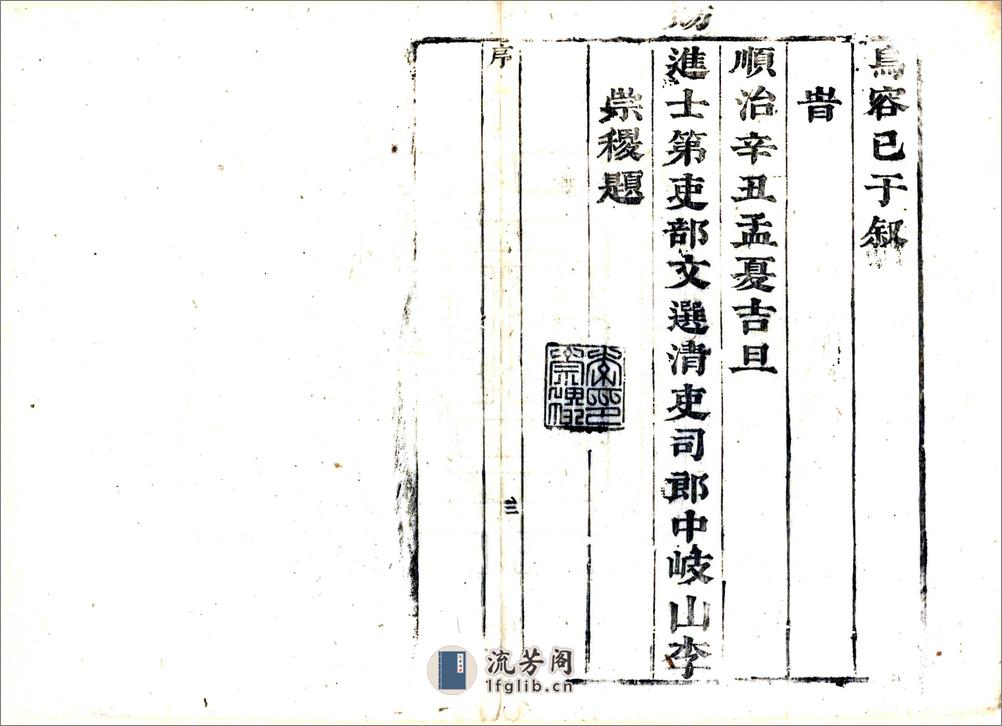 烏容已于叙
旹
順治辛丑孟夏吉旦
進士第吏部文選清吏司郎中岐山李
崇稷題
李印崇稷
序
三
流芳阁
lfglib.cn